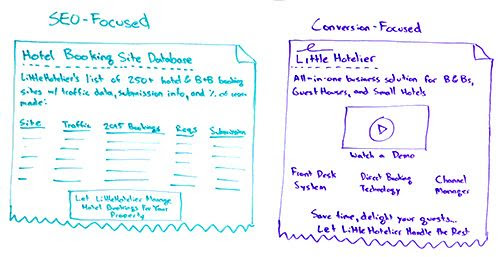 SEO-Focused
Hotel Booking Site Database
LittleHotelier's list of 250+ hotel & B+B booking
sites w/ traffic data, submission info, and % of
made:
Site Traffic 2015 Bookings Reqs Submission
Let LittleHotelier Manage
Hotel Bookings For Your
Property
Conversion-Focused
Little Hotelier
All-in-one business solution for B&Bs,
Guest Houses, and Small Hotels
Watch a Demo
Front Desk Direct Booking Channel
System Technology Manager
Save time, delight your guests...
Let LittleHotelier Handle the Rest